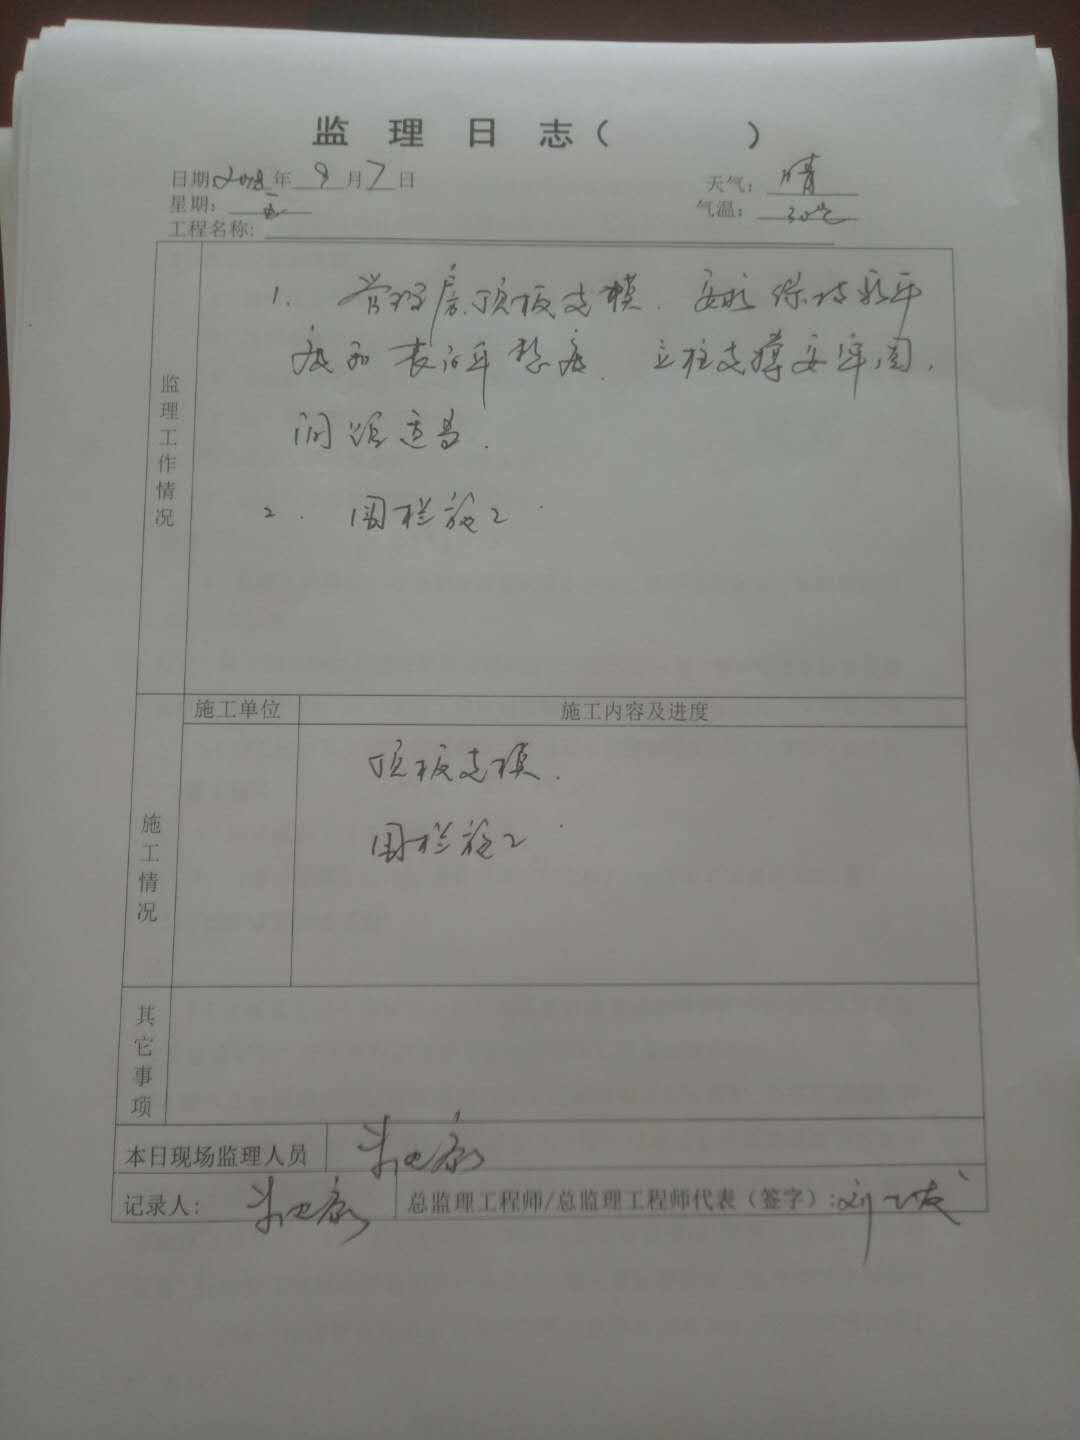 监理日志（ ）
日期2018年9月7日 天气：晴
星期：五 气温：30℃
工程名称：
监理工作情况
1. 管理房顶板支模. 要求保持水平
度和表面平整度. 立柱支撑要牢固,
间距适当.
2. 围栏施工.
施工单位 施工内容及进度
施工情况
顶板支模.
围栏施工.
其它事项
本日现场监理人员
记录人： 总监理工程师/总监理工程师代表（签字）:刘